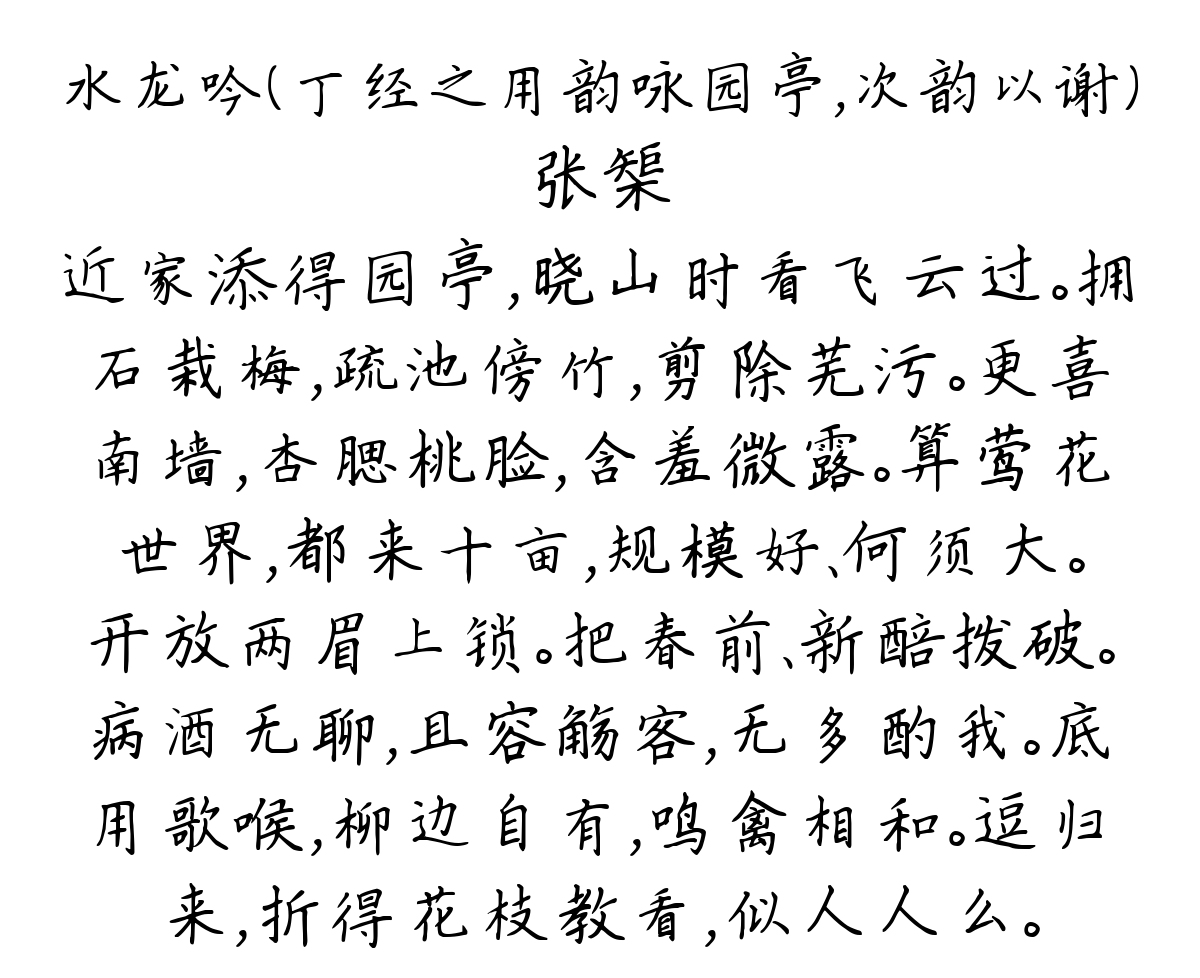 水龙吟(丁经之用韵咏园亭,次韵以谢)
张榘
近家添得园亭,晓山时看飞云过。拥
石栽梅,疏池傍竹,剪除芜污。更喜
南墙,杏腮桃脸,含羞微露。算莺花
世界,都来十亩,规模好、何须大。
开放两眉上锁。把春前、新醅拨破。
病酒无聊,且容觞客,无多酌我。底
用歌喉,柳边自有,鸣禽相和。逗归
来,折得花枝教看,似人人么。